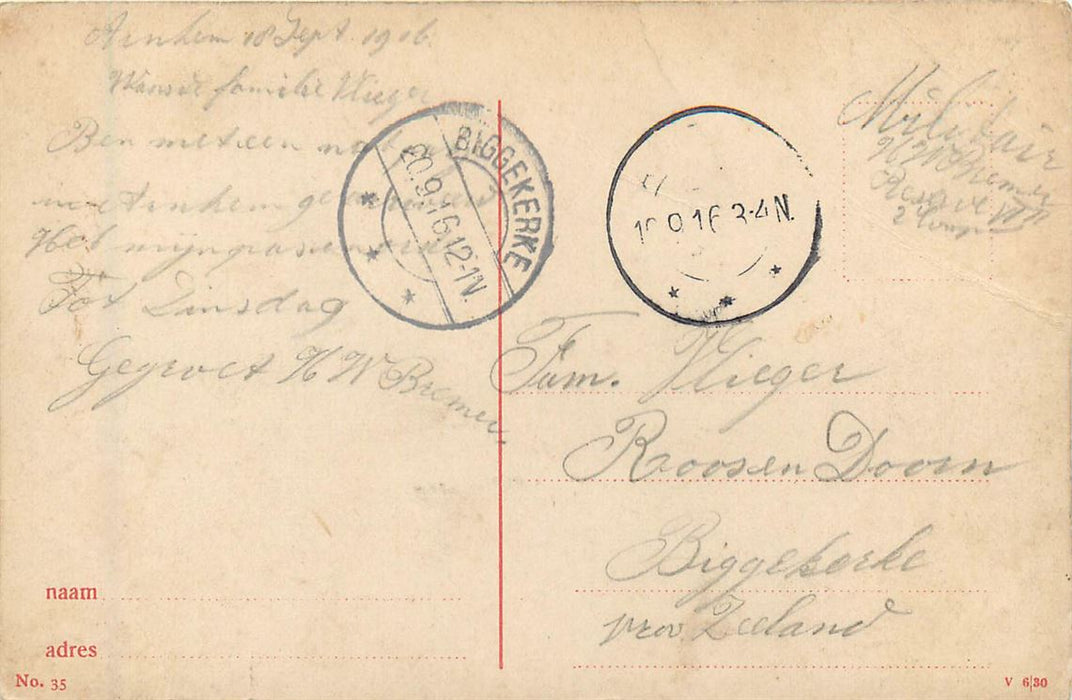 Arnhem 18 Sept. 1916.
familie Vlieger
Ben met een
Arnhem
Heb mijn
Tot Dinsdag
Gegroet H W Bremer.
BIGGEKERKE
20.9.16.12-1N.
9.16 3-4N.
Militair
H W Bremer
2 Comp
Fam. Vlieger
Roosen Doorn
Biggekerke
prov Zeeland
naam
adres
No. 35
V 6|30